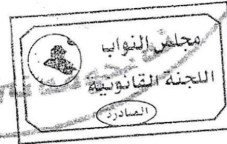 مجلس النواب
اللجنة القانونية
الصادرة